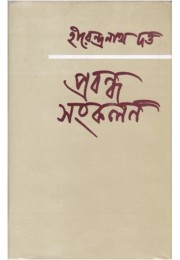 হীরেন্দ্রনাথ দত্ত
প্রবন্ধ
সংকলন